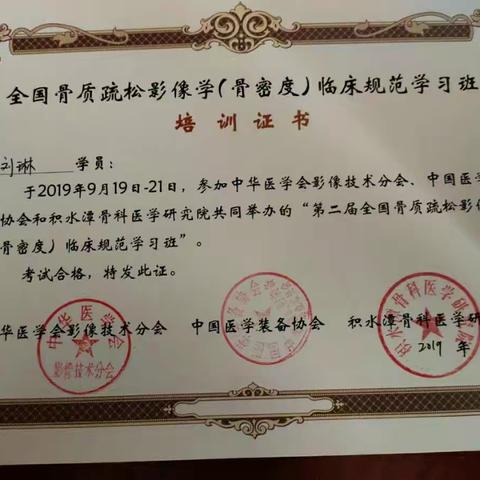 全国骨质疏松影像学(骨密度)临床规范学习班
培训证书
刘琳 学员:
于2019年9月19日-21日,参加中华医学会影像技术分会、中国医学
协会和积水潭骨科医学研究院共同举办的“第二届全国骨质疏松影像
骨密度)临床规范学习班”。
考试合格,特发此证。
华医学会影像技术分会 中国医学装备协会 积水潭骨科医学研
2019 年
中华医学会
影像技术分会
积水潭骨科医学研究院